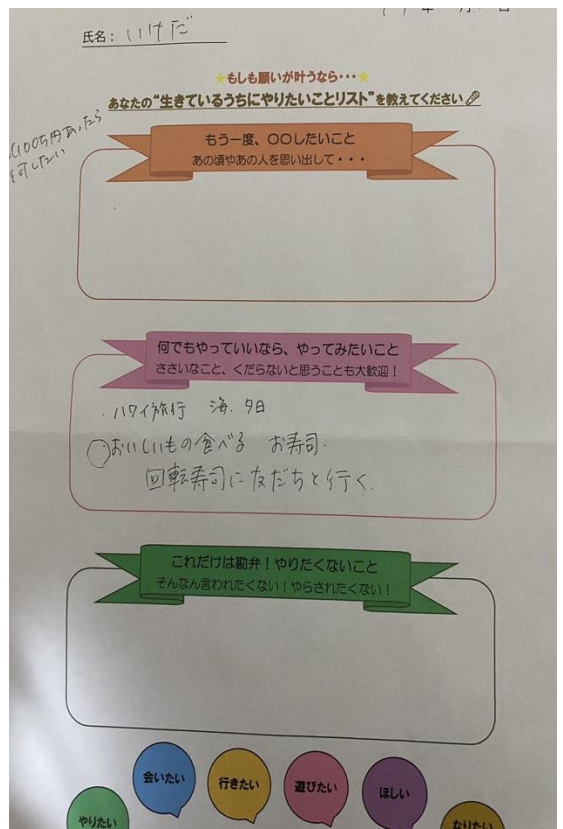 氏名: いけだ
もしも願いが叶うなら・・・
あなたの“生きているうちにやりたいことリスト”を教えてください
100万円あったら
何したい
もう一度、〇〇したいこと
あの頃やあの人を思い出して・・・
何でもやっていいなら、やってみたいこと
ささいなこと、くだらないと思うことも大歓迎！
・ハワイ旅行 海、夕日
〇おいしいもの食べる お寿司.
回転寿司に友だちと行く.
これだけは勘弁！やりたくないこと
そんなん言われたくない！やらされたくない！
会いたい
行きたい
遊びたい
ほしい
やりたい
なりたい